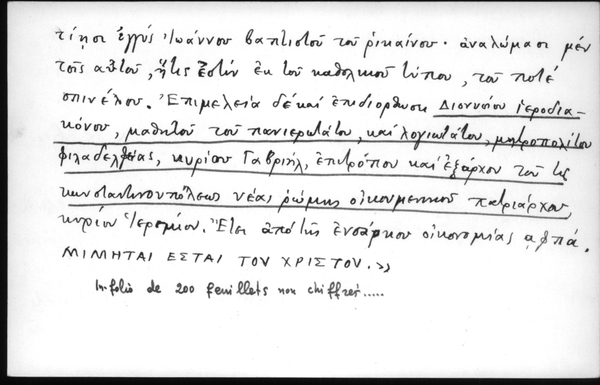 τίῃσι ἐγγύς Ἰωάννου βαπτιστοῦ τοῦ ῥικαίνου· ἀναλώμασι μέν
τοῖς αὐτοῦ, ἥτις ἐστίν ἐκ τοῦ καθολικοῦ τύπου, τοῦ ποτέ
σπινέλου. Ἐπιμελεία δέ καί ἐπιδιορθώσῃ Διονυσίου ἱεροδια-
κόνου, μαθητοῦ τοῦ πανιερωτάτου, καί λογιωτάτου, μητροπολίτου
φιλαδελφείας, κυρίου Γαβριήλ, ἐπιτρόπου καί ἐξάρχου τοῦ τῆς
κωνσταντινουπόλεως νέας ῥώμης οἰκουμενικοῦ πατριάρχου,
κυρίου Ἱερεμίου. Ἔτει ἀπό τῆς ἐνσάρκου οἰκονομίας αφπά.
ΜΙΜΗΤΑΙ ΕΣΤΑΙ ΤΟΥ ΧΡΙΣΤΟΥ.»
In folio de 200 feuillets non chiffrés.....